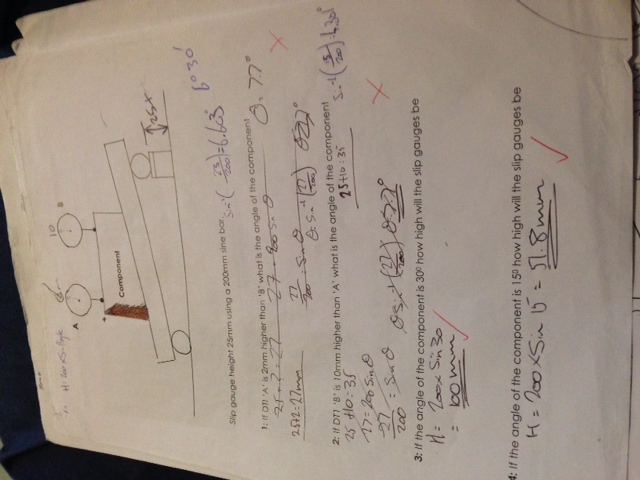 A
10
B
Component
25
Slip gauge height 25mm using a 200mm sine bar.
Sin⁻¹ (23/200) = 6.63 6°36'
1: If DTI 'A' is 2mm higher than 'B' what is the angle of the component
25+2=27
27=200 Sin θ
θ = 7.7°
25+2=27mm
27/200 = Sin θ
θ = Sin⁻¹ (27/200)
2: If DTI 'B' is 10mm higher than 'A' what is the angle of the component
25+10=35
25+10=35
27=200 Sin θ
27/200 = Sin θ
3: If the angle of the component is 30° how high will the slip gauges be
H = 200 x Sin 30
= 100mm
4: If the angle of the component is 15° how high will the slip gauges be
H = 200 x Sin 15 = 51.8mm